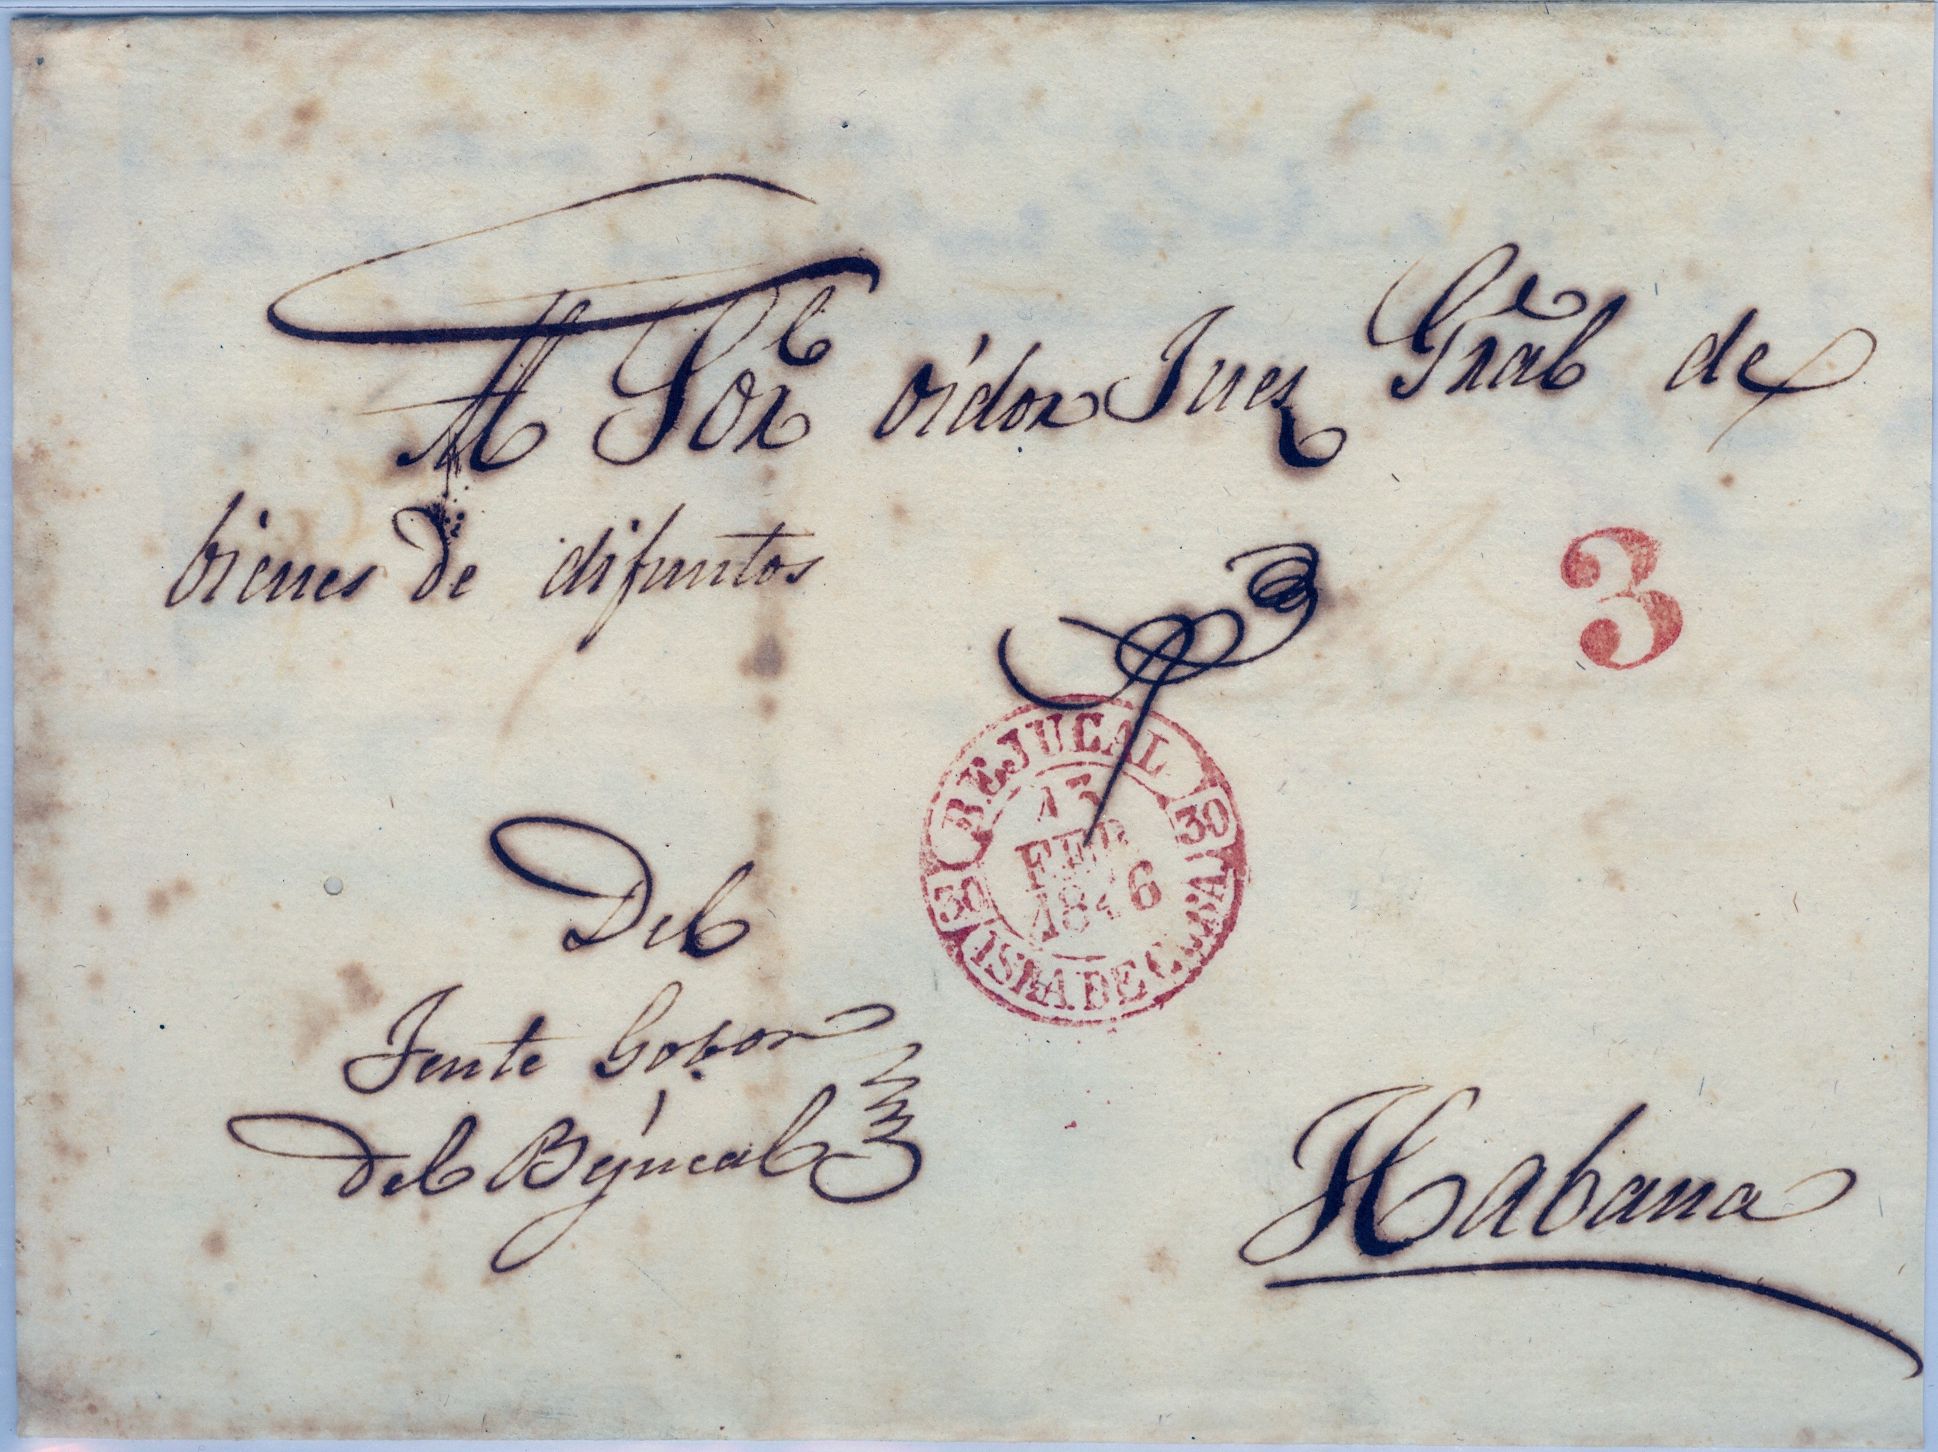 Al Sor oidor Juez Gräl de
bienes de difuntos
3
BEJUCAL
13
FEB
1846
30
30
ISLA DE CUBA
Del
Tente Gobor
del Bejucal
Habana